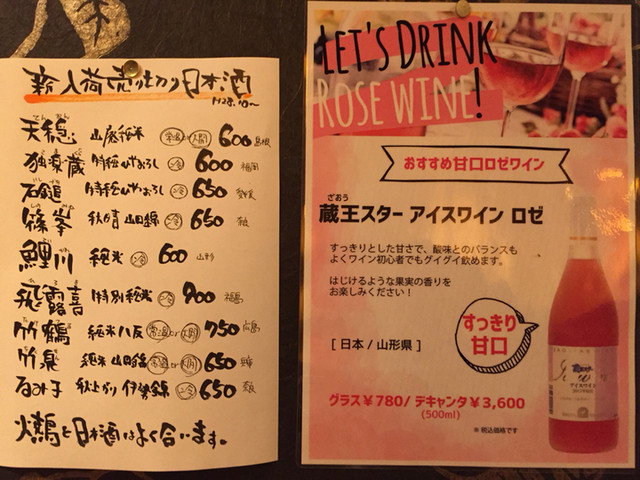 新入荷売り切り日本酒
H28.10～
天穏 山廃純米 常温or燗 600 島根
独楽蔵 特純ひやおろし 冷 600 福岡
石鎚 特純ひやおろし 冷 650 愛媛
篠峯 秋晴 山田錦 冷 650 奈良
鯉川 純米 冷 600 山形
飛露喜 特別純米 冷 900 福島
竹鶴 純米八反 常温or燗 750 広島
竹泉 純米 山田錦 常温or燗 650
るみ子 秋上がり 伊勢錦 冷 650
火鶏と日本酒はよく合います。
LET'S DRINK
ROSE WINE!
おすすめ甘口ロゼワイン
ざおう
蔵王スター アイスワイン ロゼ
すっきりとした甘さで、酸味とのバランスも
よくワイン初心者でもグイグイ飲めます。
はじけるような果実の香りを
お楽しみください！
すっきり
甘口
[ 日本 / 山形県 ]
グラス¥780/ デキャンタ¥3,600
(500ml)
※ 税込価格です